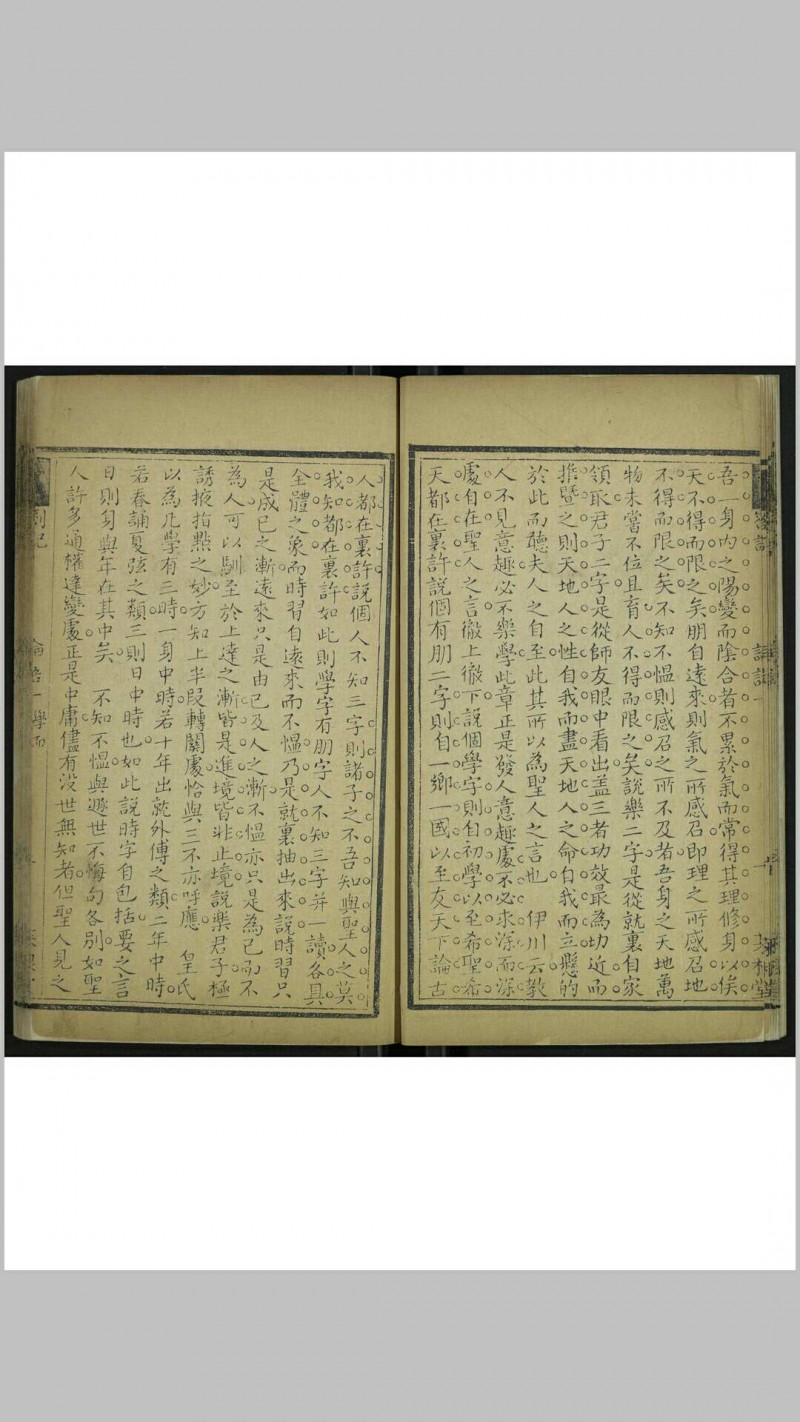 吾一身內之陽變而陰合者不累於氣而常得其理修身以俟
天不得而限之矣朋自遠來則氣之所感召即理之所感召地
不得而限之矣不知不慍則感召之所不及者吾身之天地萬
物未嘗不位且育人不得而限之矣說樂二字是從就裏自家
領取君子二字是從師友眼中看出盖三者功效最為切近而
推暨之則天地人之性自我而盡天地人之命自我而立懸的
於此而聽夫人之自至此其所以為聖人之言也 伊川云教
人不見意趣必不樂學此章正是發人意趣處不必求深而深
處自在聖人之言徹上徹下說個學字則自初學以至希聖希
天都在裏許說個有朋二字則自一鄉一國以至友天下論古
人都在裏許說個人不知三字則諸子之不吾知與聖人之莫
我知都在裏許如此則學字有朋字人不知三字并一讀各具
全體之象而時習自遠來而不慍乃是就裏抽出來說時習只
是成已之漸遠來只是由已及人之漸不慍亦只是為已而不
為人可以馴至於上達之漸皆是進境皆非止境説樂君子極
誘掖指點之妙方知上半段轉關處恰與三不亦呼應 皇氏
以為凡學有三時一身中時若十年出就外傅之類二年中時
若春誦夏弦之類三則日中時也如此說時字自包括要之言
日則身與年在其中矣 不知不慍與遯世不悔句各別如聖
人許多通權達變處正是中庸儘有沒世無知者但聖人見之
劄記
學而